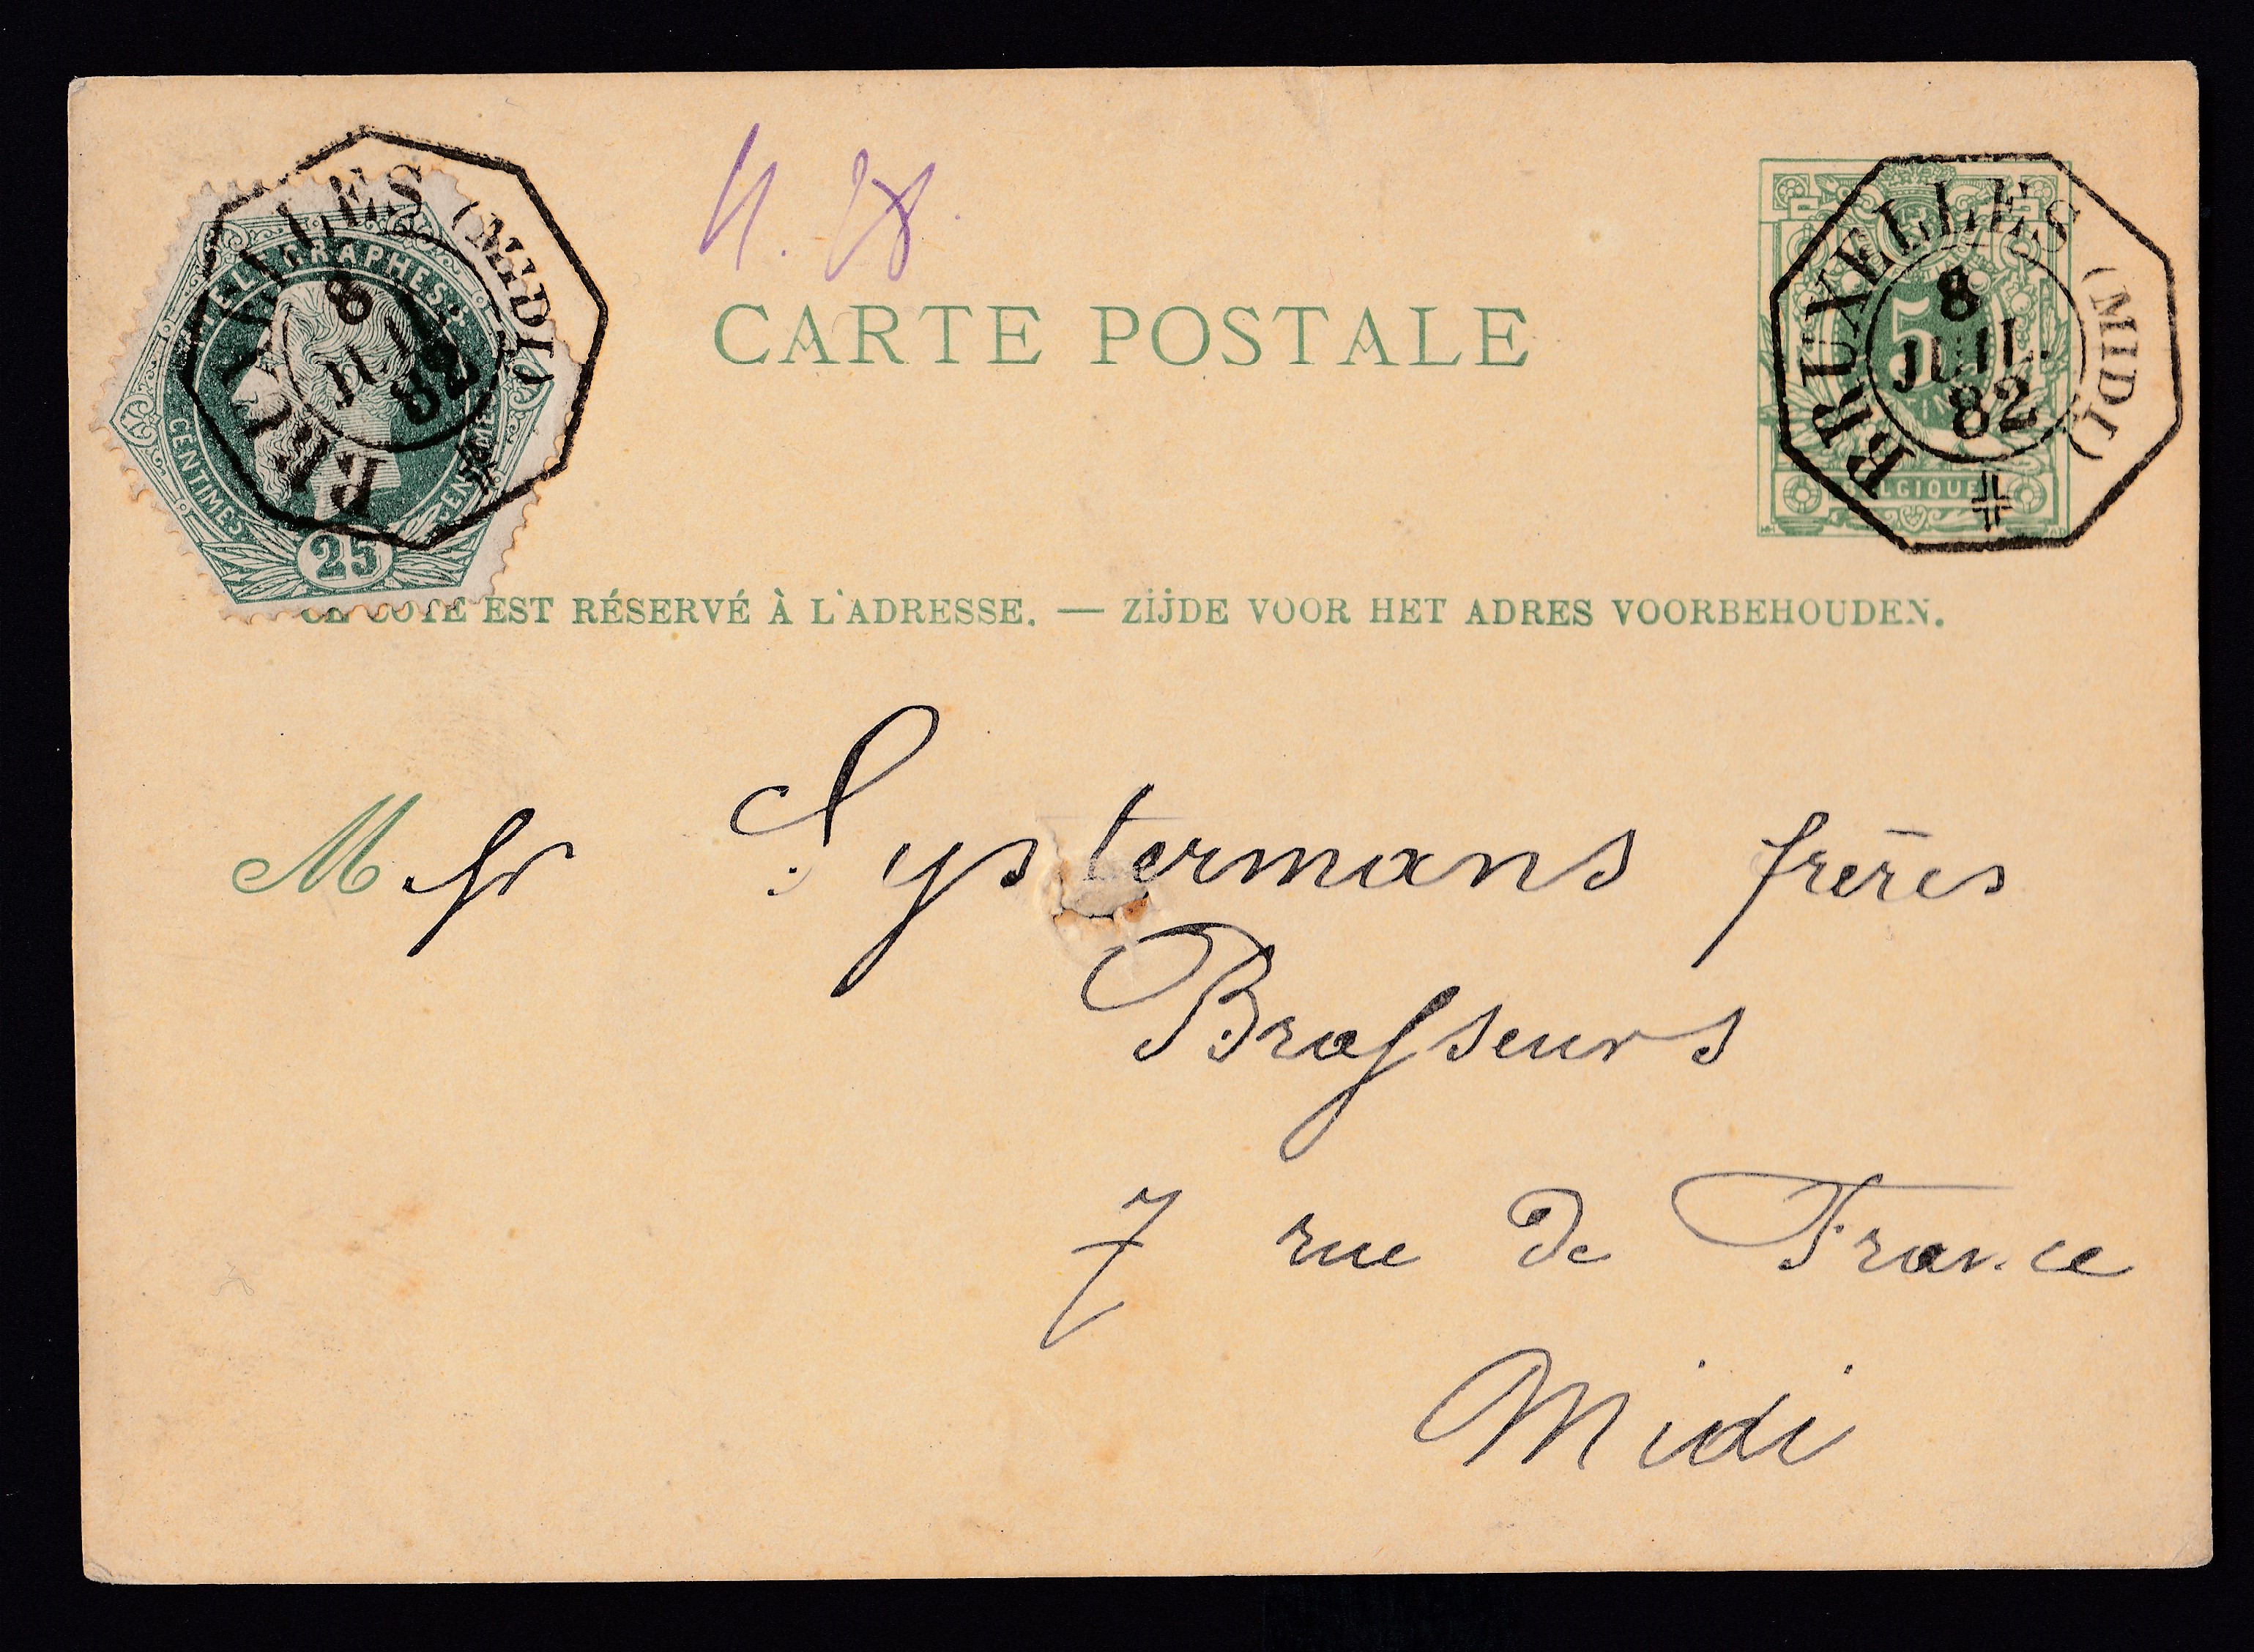 4. 28.
TELEGRAPHES
CENTIMES
25
CENTIMES
BRUXELLES (MIDI)
8
JUIL
82
CARTE POSTALE
5
BELGIQUE
BRUXELLES (MIDI)
8
JUIL.
82
CE COTE EST RÉSERVÉ À L'ADRESSE. — ZIJDE VOOR HET ADRES VOORBEHOUDEN.
M Systermans frères
Brasseurs
7 rue de France
Midi